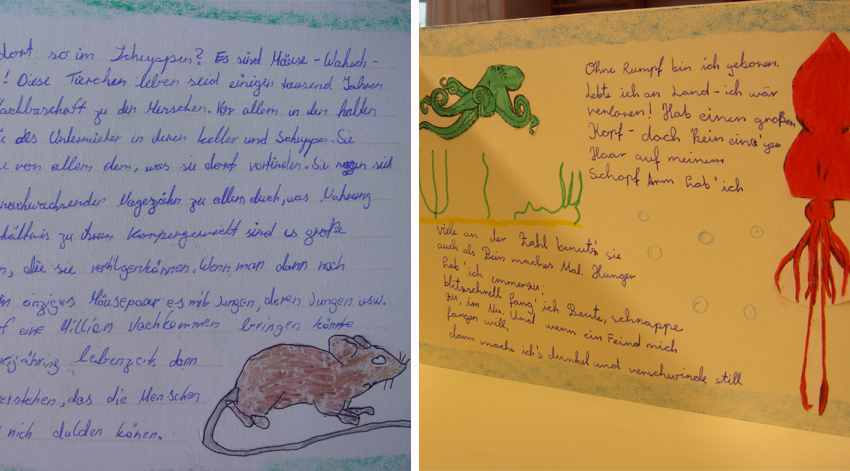 dort so im Scheyppen? Es sind Mäuse-Wahsch-
! Diese Tierchen leben seid einigen tausend Jahren
Nachbarschaft zu den Menschen. Vor allem in den kalten
als Untermieter in deren Keller und Schyppen. Sie
von allem dem, was sie dort vorfinden. Sie nagen sich
nachwachsender Nagezähn zu allem durch, was Nahrung
hältnis zu ihrem Körpergewicht sind es große
n, die sie vertilgenkönnen. Wenn man dann noch
einziges Mäusepaar es mit Jungen, deren Jungen usw.
f eine Million Nachkommen bringen könnte
jähring lebenzeit, dann
erstehen, das die Menschen
nich dulden könen.
Ohne Rumpf bin ich geboren.
Lebte ich an Land-ich wär
verloren! Hab einen großen
Kopf-doch kein einz'ges
Haar auf meinem
Schopf Arm hab' ich
viele an der Zahl benutz' sie
auch als Bein maches Mal. Hunger
hab' ich immerzu:
blitzschnell fang' ich Beute, schnappe
zu, im Nu. Und wenn ein Feind mich
fangen will,
dann mache ich's dunkel und verschwinde still